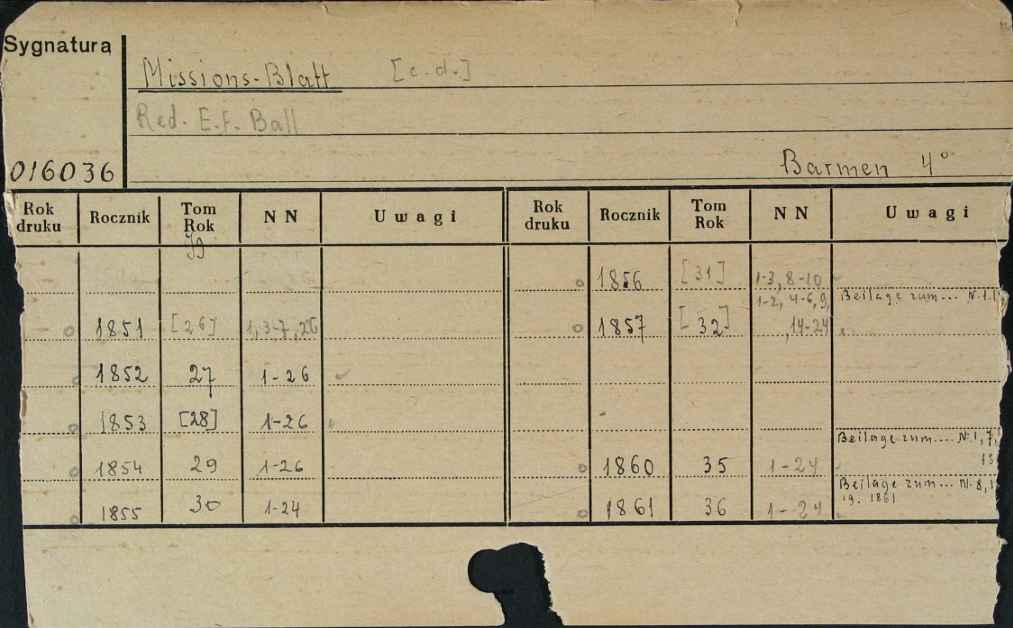 Sygnatura
Missions-Blatt [c.d.]
Red. E.F. Ball
016036
Barmen 4°
Rok druku Rocznik Tom Rok NN Uwagi Rok druku Rocznik Tom Rok NN Uwagi
Jg
1856 [31] 1-3, 8-10
Beilage zum... N.1.
1851 [26] 1, 3-7, 26
1857 [32] 1-2, 4-6, 9, 14-24
1852 27 1-26
1853 [28] 1-26
Beilage zum.... N.1, 7,
1854 29 1-26
1860 35 1-24
13
Beilage zum... N. 8, 1
19. 1861
1855 30 1-24
1861 36 1-24